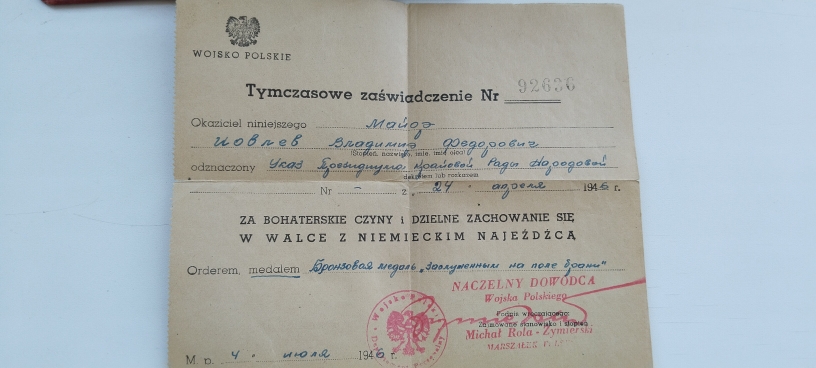 WOJSKO POLSKIE
Tymczasowe zaświadczenie Nr 92636
Okaziciel niniejszego Майор
Иовлев Владимир Федорович
(Stopień, nazwisko, imię, imię ojca)
odznaczony Указ Президиума Крайовей Рады Народовей
dekretem lub rozkazem
Nr - z 24 апреля 1946 r.
ZA BOHATERSKIE CZYNY i DZIELNE ZACHOWANIE SIĘ
W WALCE Z NIEMIECKIM NAJEŹDŹCĄ
Orderem, medalem Бронзовая медаль „Заслуженным на поле брани"
NACZELNY DOWÓDCA
Wojska Polskiego
Podpis wręczającego:
Zajmowane stanowisko i stopień
Michał Rola-Żymierski
MARSZAŁEK
Wojska Polskie
M. p. 4. июля 1946 r.